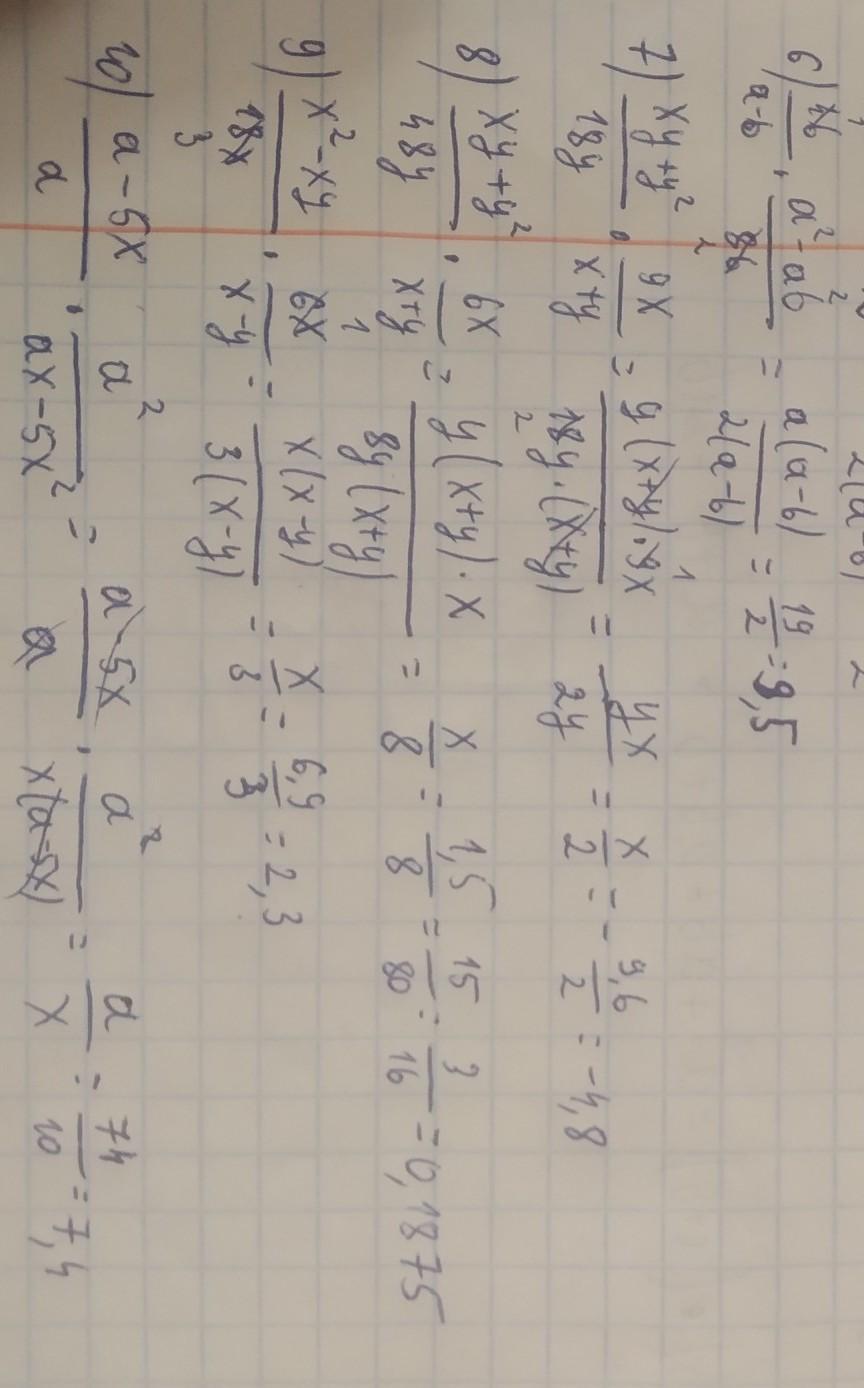 6) 4b/a-b · a²-ab/8b = a(a-b)/2(a-b) = 19/2 = 9,5
7) xy+y²/18y · 9x/x+y = y(x+y)·9x/18y·(x+y) = yx/2y = x/2 = -9,6/2 = -4,8
8) xy+y²/48y · 6x/x+y = y(x+y)·x/8y(x+y) = x/8 = 1,5/8 = 15/80 = 3/16 = 0,1875
9) x²-xy/18x · 6x/x-y = x(x-y)/3(x-y) = x/3 = 6,9/3 = 2,3
10) a-5x/a · a²/ax-5x² = a-5x/a · a²/x(a-5x) = a/x = 74/10 = 7,4